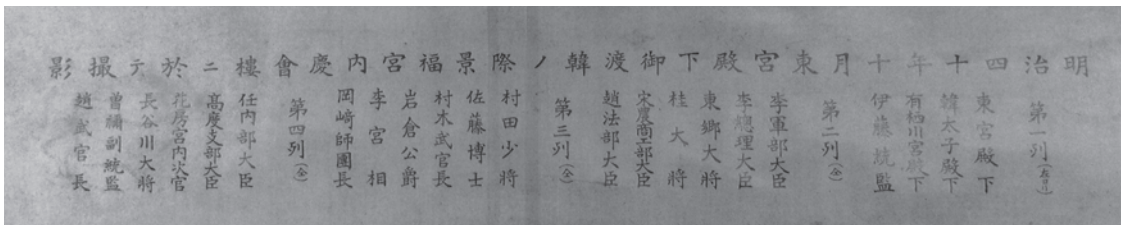 明治四十年十月東宮殿下御渡韓ノ際景福宮内慶會樓ニ於テ撮影
第一列(左ヨリ)
東宮殿下
韓太子殿下
有栖川宮殿下
伊藤統監
第二列(仝)
李軍部大臣
李總理大臣
東郷大將
桂大將
宋農商工部大臣
趙法部大臣
第三列(仝)
村田少將
佐藤博士
村木武官長
岩倉公爵
李宮相
岡﨑師團長
第四列(仝)
任内部大臣
高度支部大臣
花房宮内次官
長谷川大將
曾禰副統監
趙武官長